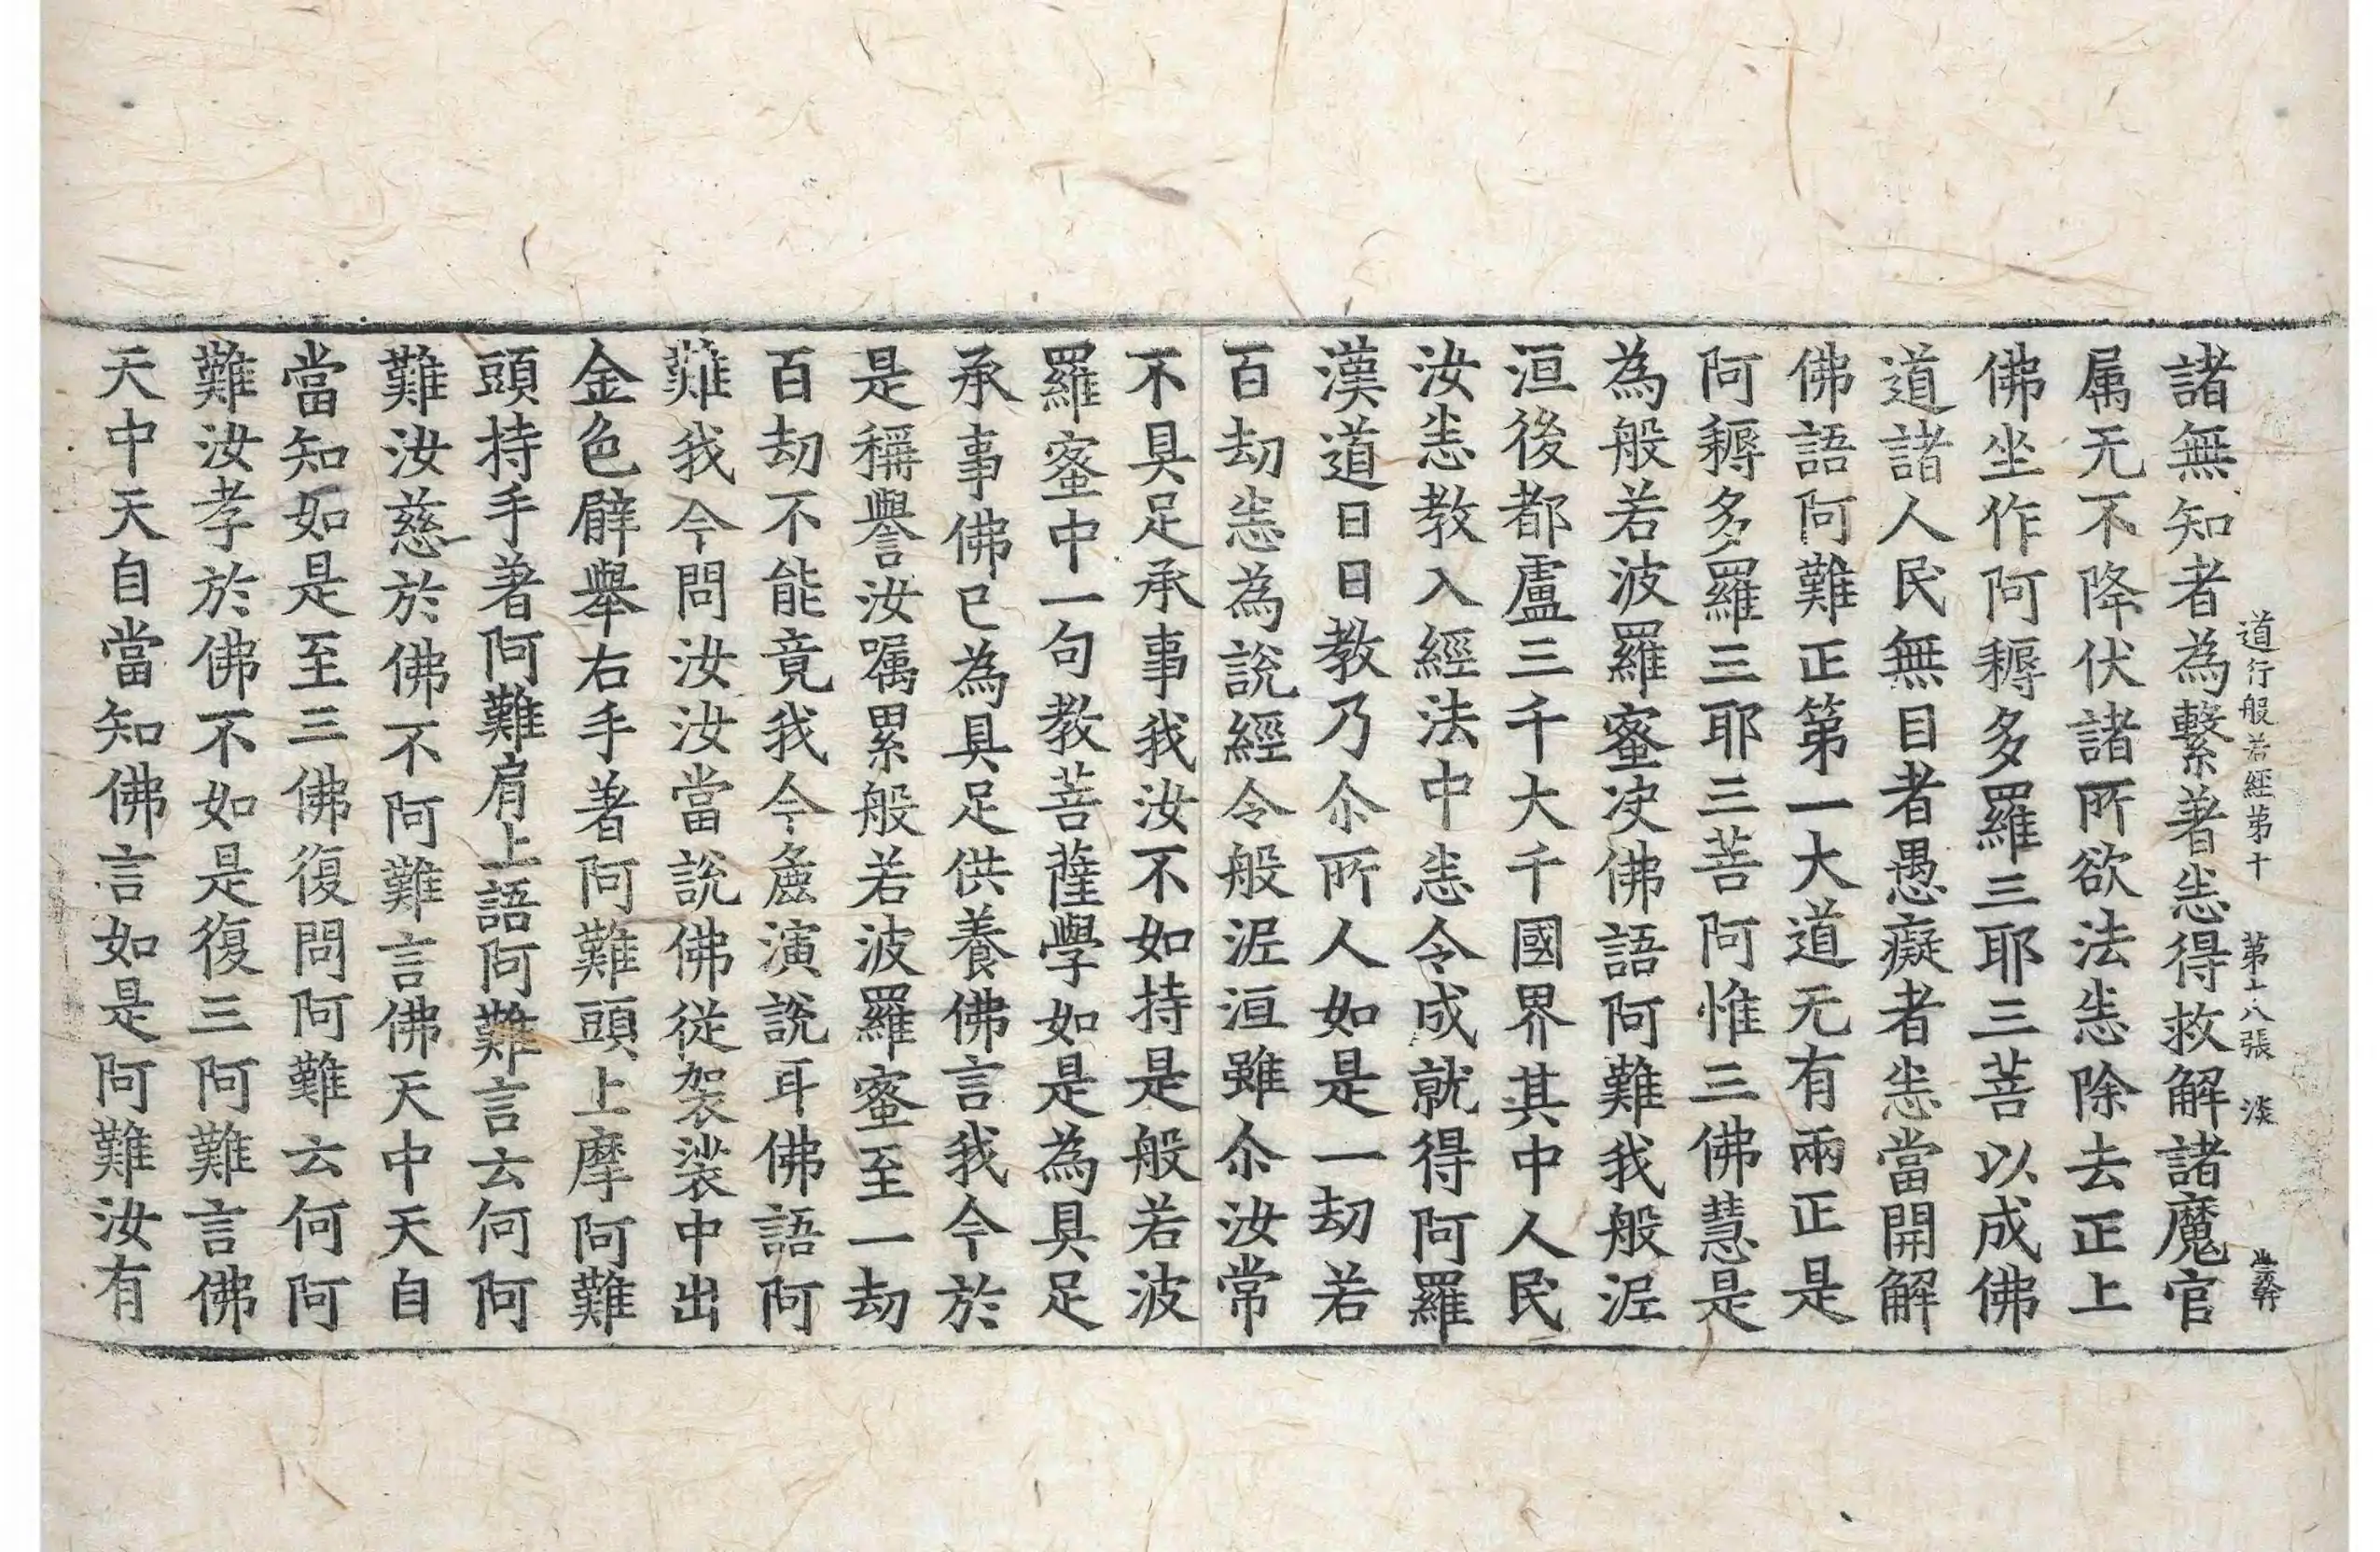 道行般若經第十 第十八張 淡
諸無知者為繫著恙得救解諸魔官
属无不降伏諸所欲法恙除去正上
佛坐作阿耨多羅三耶三菩以成佛
道諸人民無目者愚癡者恙當開解
佛語阿難正第一大道无有兩正是
阿耨多羅三耶三菩阿惟三佛慧是
為般若波羅蜜决佛語阿難我般泥
洹後都盧三千大千國界其中人民
汝恙教入經法中恙令成就得阿羅
漢道日日教乃尒所人如是一劫若
百劫恙為說經令般泥洹雖尒汝常
不具足承事我汝不如持是般若波
羅蜜中一句教菩薩學如是為具足
承事佛已為具足供養佛言我今於
是稱譽汝囑累般若波羅蜜至一劫
百劫不能竟我今麁演說耳佛語阿
難我今問汝汝當說佛從袈裟中出
金色臂舉右手著阿難頭上摩阿難
頭持手著阿難肩上語阿難言云何阿
難汝慈於佛不阿難言佛天中天自
當知如是至三佛復問阿難云何阿
難汝孝於佛不如是復三阿難言佛
天中天自當知佛言如是阿難汝有